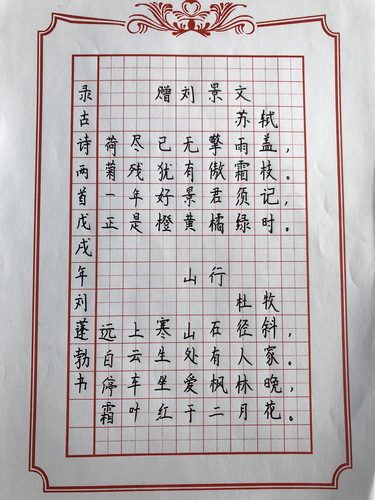 录古诗两首戊戌年刘蓬勃书
赠刘景文
苏轼
荷尽已无擎雨盖，
菊残犹有傲霜枝。
一年好景君须记，
正是橙黄橘绿时。
山行
杜牧
远上寒山石径斜，
白云生处有人家。
停车坐爱枫林晚，
霜叶红于二月花。